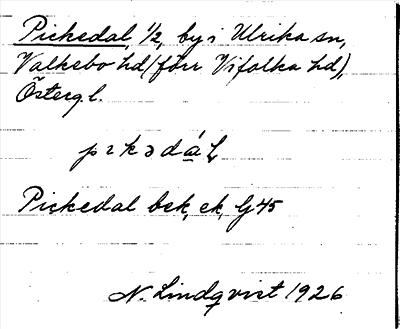 Pickedal, 1/2, by i Ulrika sn,
Valkebo hd (förr Vifolka hd),
Östergl.
pɩkədáL
Pickedal bek, ek, G 45
N. Lindqvist 1926